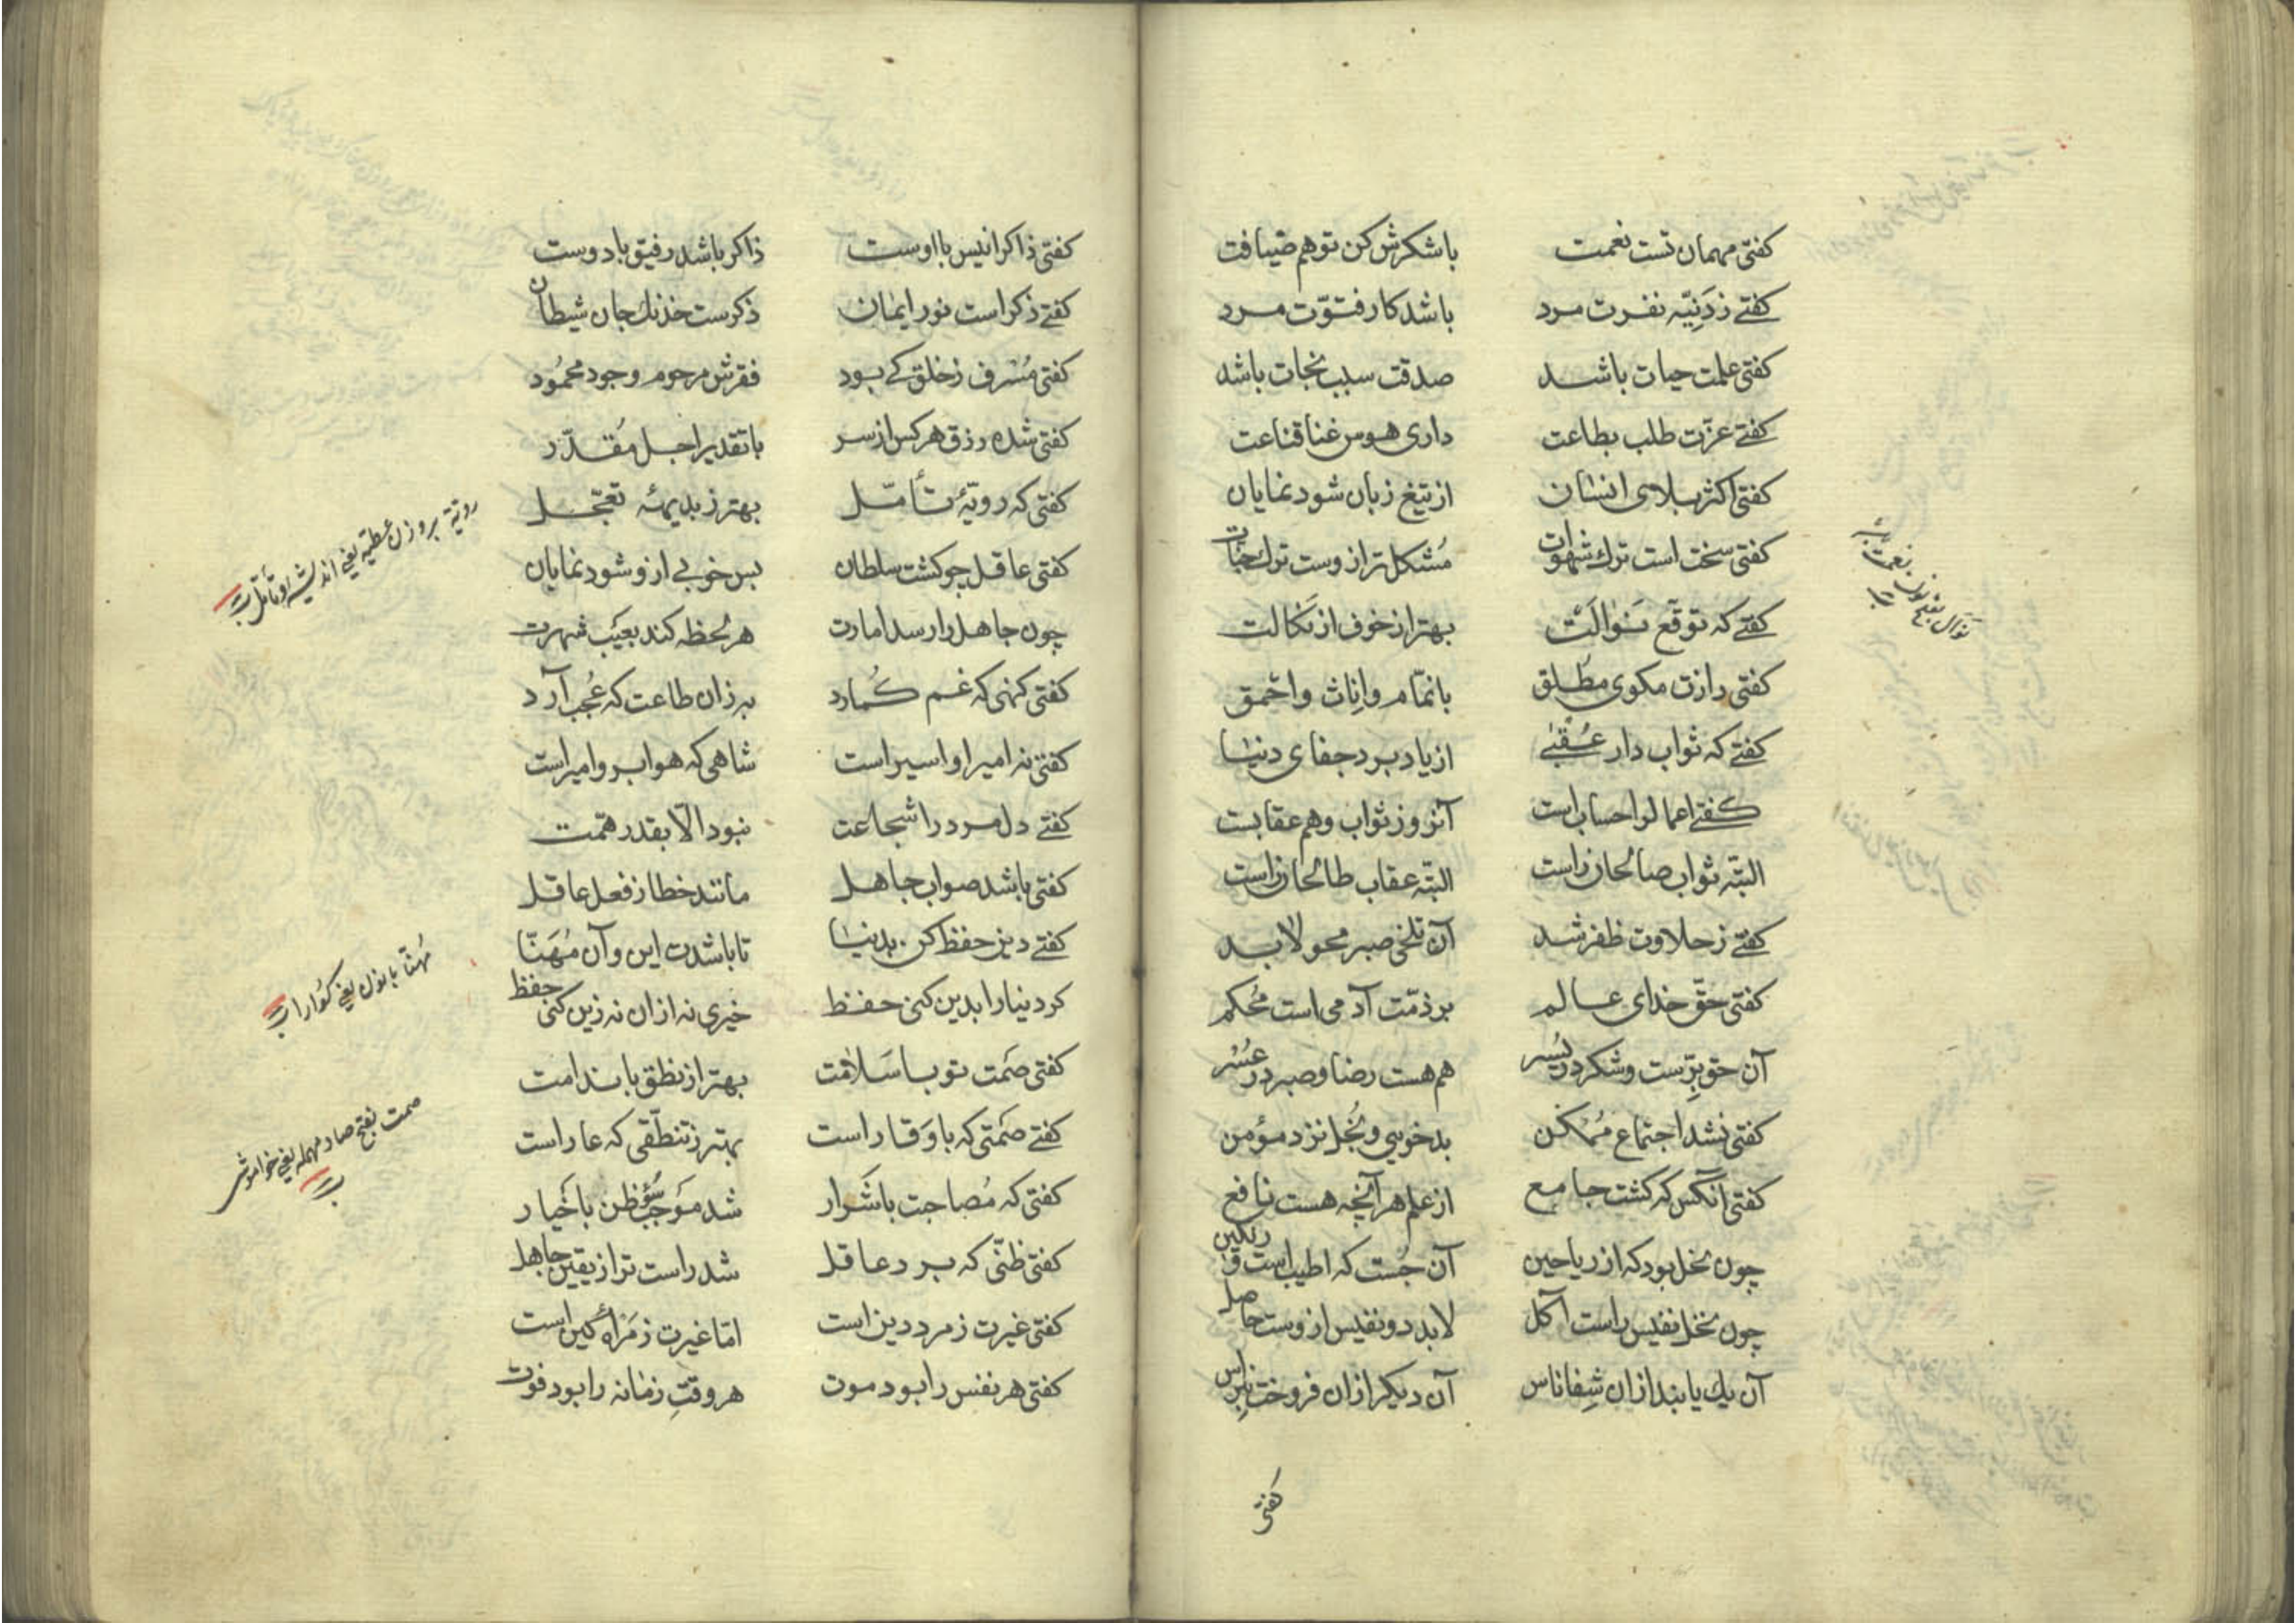 کفتی مهمان تست نعمت باشکرش کن تو هم ضیافت
کفتے زدَنِیّه نفرت مرد باشد کار فتوّت مرد
کفتی علمت حیات باشد صدقت سبب نجات باشد
کفتے عزّت طلب بطاعت داری هوس غنا قناعت
کفتی اکثر بلای انسان از تیغ زبان شود نمایان
کفتی سخت است ترك شهوات مُشکل تر ازوست ترك
کفتے که توقّع نَوالَتْ بهتر از خوف از نکالت
کفتی رازت مکوی مطلق با نمّام و اِناث و احمق
کفتے که ثواب دار عُقبٰے از یاد برد جفای دنیا
کفتے اعمال را حساب است آنروز ثواب وهم عقابست
البتّه ثواب صالحان راست البته عقاب طالحان راست
کفتے ز حلاوت ظفر شد آن تلخی صبر محو لابد
کفتی حقّ خدای عالم بر ذمّت آدمی است مُحکم
آن حق برّست وشکر در یُسر هم هست رضا وصبر در عُسْر
کفتی نشد اجتماع مُمکن بدخویی و بُخل نزد مؤمن
کفتی آنکس که کشت جامع از علم هر آنچه هست نافع
چون نحل بود که از ریاحین آن جُست که اطیب است و رنکین
چون نحل نفیس راست آکل لابد دو نفیس ازوست حاصل
آن یك یابند ازان شِفا ناس آن دیکر ازان فروخت نبراس
نوال بفتح نون نعمت
کفتی
کفتی ذاکر انیس با اوست ذاکر باشد رفیق با دوست
کفتے ذکر است نور ایمان ذکرست خدنك جان شیطان
کفتی مُسْرف ز خلق کے بود فقرش مرحوم وجود محمُود
کفتی شده رزق هر کس از سر با تقدیر اجل مُقدّر
کفتی که رویّهٔ تأمّل بهتر ز بدیههٔ تعجّل
کفتی عاقل چو کشت سلطان بس خوبے ازو شود نمایان
چون جاهل را رسد امارت هر لحظه کند بعیب شهرت
کفتی کنهی که غم کُمارد به زان طاعت که عُجب آرد
کفتی نه امیر او اسیر است شاهی که هوا برو امیر است
کفتے دل مرد را شجاعت نبود الّا بقدر همّت
کفتی باشد صواب جاهل مانند خطا ز فعل عاقل
کفتے دین حفظ کن بدنیا تا باشدت این وآن مُهَنّا
کر دنیا را بدین کنی حفظ خیری نه ازان نه زین کنی حفظ
کفتی صَمت تو با سَلامَت بهتر از نطق با ندامت
کفتے صَمتی که با وَقار است بهتر ز تنطّقی که عار است
کفتی که مُصاحبت با شرار شد مَوجب سُوءِ ظن با خیار
کفتی ظنّی که برد عاقل شد راست تر از یقین جاهل
کفتی غیرت ز مرد دین است امّا غیرت ز مَرأه کین است
کفتی هر نفس را بود موت هر وقتِ زمانه را بود فوت
رویّة بروزن عطیّه یعنی اندیشه و تأمّل
مُهنّا با نون یعنی کوارا
صمت بفتح صاد مهمله یعنی خواموشی